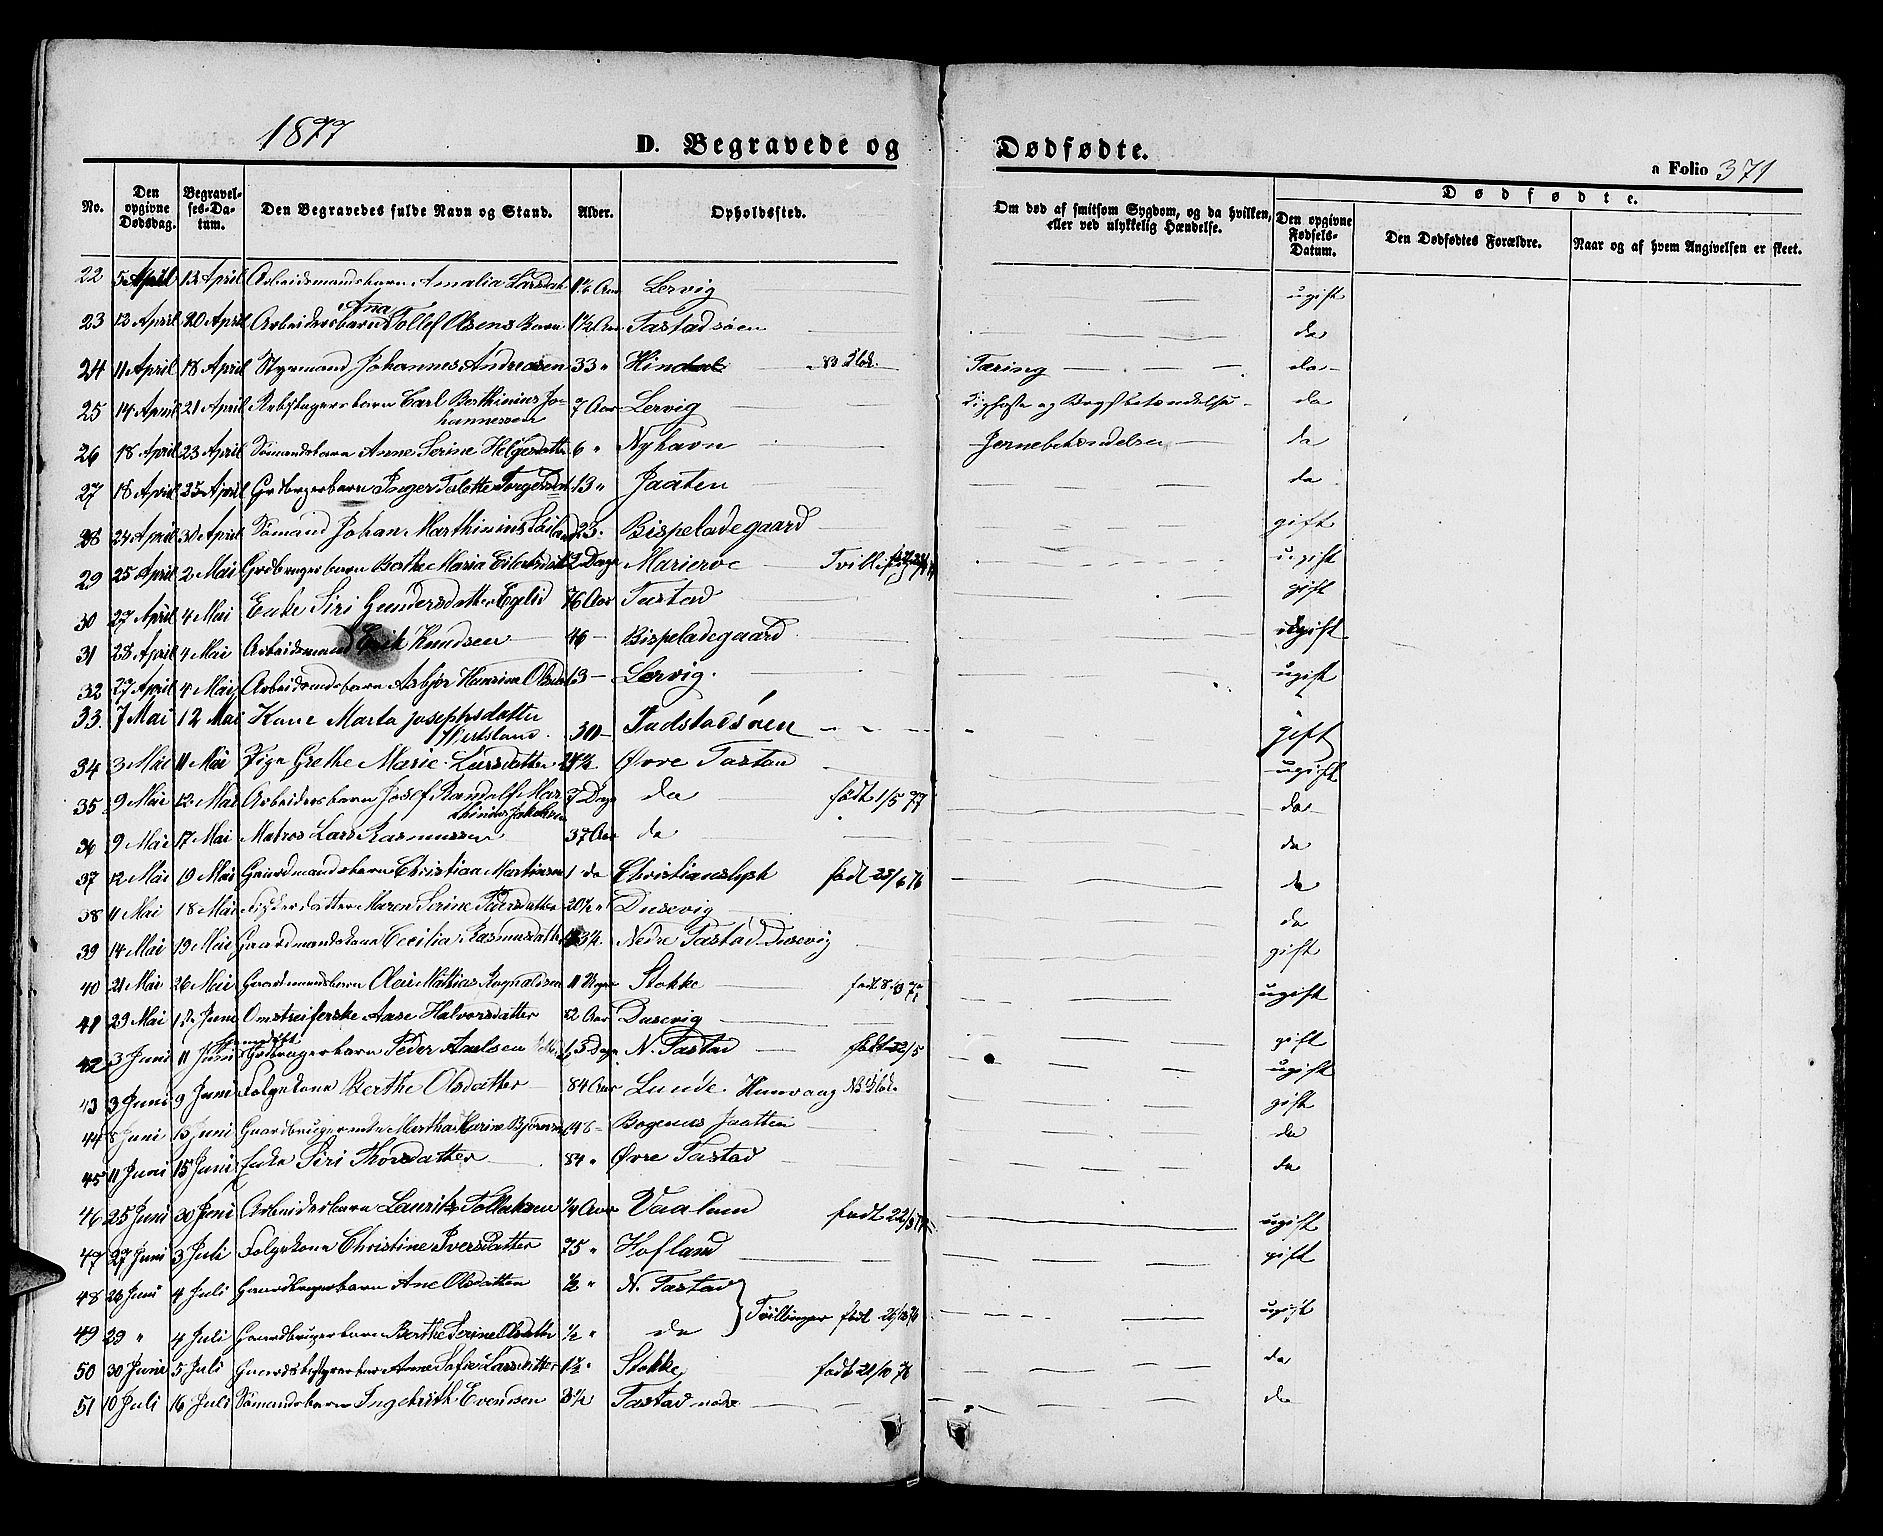 1877
D. Begravede og Dødfødte.
a Folio 371
No. Den opgivne Dødsdag. Begravelses-Datum. Den Begravedes fulde Navn og Stand. Alder. Opholdssted. Om død af smitsom Sygdom, og da hvilken, eller ved ulykkelig Hændelse. Dødfødte.
Den opgivne Fødsels-Datum. Den Dødfødtes Forældre. Naar og af hvem Angivelsen er skeet.
22 5 April 13 April Arbeidsmandsbarn Amalia Larsdat Aar Lervig ugift
Ana
23 13 April 20 April Arbeidersbarn Tollef Olsens Barn 1½ Aar Tastadsöen da
24 11 April 18 April Styrmand Johannes Andreasen 33 " Hindal Tæring da
25 14 April 21 April Rebslagersbarn Carl Berthinius Jo- 7 Aar Lervig og da
hannessen
26 18 April 23 April Sömandsbarn Anne Serine Helgesdatter 6 " Nyhavn da
27 18 April 25 April Grdbrugerbarn Inger Talette Torgersdat 13 " Jaaten da
28 24 April 30 April Sömand Johan Marthinius 23 Bispeladegaard gift
29 25 April 2 Mai Grdbrugerbarn Berthe Maria Eilertsdat 12 Dage Marieroe Tvill. ugift
30 27 April 4 Mai Enke Siri Gundersdatter Eglid 76 Aar Tastad gift
31 28 April 4 Mai Arbeidsmand Erik Knudsen 46 Bispeladegaard ugift
32 27 April 4 Mai Arbeidsmdsbarn Asbjør Hanrine Olsdat 13 Lervig. ugift
33. 7 Mai 12 Mai Kone Marta Josephsdatter 30 Tadstadsöen gift
34 3 Mai 11 Mai Pige Grethe Marie Larsdatter Øvre Tastad ugift
35 9 Mai 12 Mai Arbeidersbarn Josef Randolf Mar- 7 Dage da født 1/5 77 da
thinius Jakobsen
36 9 Mai 17 Mai Matros Lars Rasmussen 37 Aar da da
37 12 Mai 19 Mai Gaardmandsbarn Christian Martinsen 1 da Christianslyst født 25/6 76 da
38 11 Mai 18 Mai Maren Serine Peersdatter 20½ " Dusevig da
39 14 Mai 19 Mai Gaardmandskone Cecilia Rasmusdatter Nedre Tastad Dusevig gift
40 21 Mai 26 Mai Gaardmandsbarn Olai Mathias Ragnaldsen 11 Uger Stokke ugift
41 29 Mai Juni Omstreiferske Aase Halvorsdatter 52 Aar Dusevig gift
42 3 Juni 11 Juni Grdbrugerbarn Peder Axelsen Dage N. Tastad født 22/5 ugift
43 3 Juni 9 Juni Følgekone Berthe Olsdatter 84 Aar Lunde. gift
44 8 Juni 15 Juni Gaardbruger Martha Karine Bogenes Jaatten da
45 11 Juni 15 Juni Enke Siri Thorsdatter 84 " Øvre Tastad da
46 25 Juni 30 Juni Arbeidersbarn Lauritz Tollaksen ¼ Aar Vaaland født 22/3 77 ugift
47 27 Juni 3 Juli Følgekone Christine Iversdatter 75 " Hofland gift
48 26 Juni 4 Juli Gaardbrugerbarn Ane Olsdatter ½ " N. Tastad
Tvillinger født ugift
49 29 " 4 Juli Gaardbrugerbarn Berthe Serine Olsdatter ½ " da
50 30 Juni 5 Juli Anne Sofie Larsdatter Stokke født 21/10 76 da
51 10 Juli 16 Juli Sömandsbarn Ingebrith Evensen 3½ Tastad nedre da